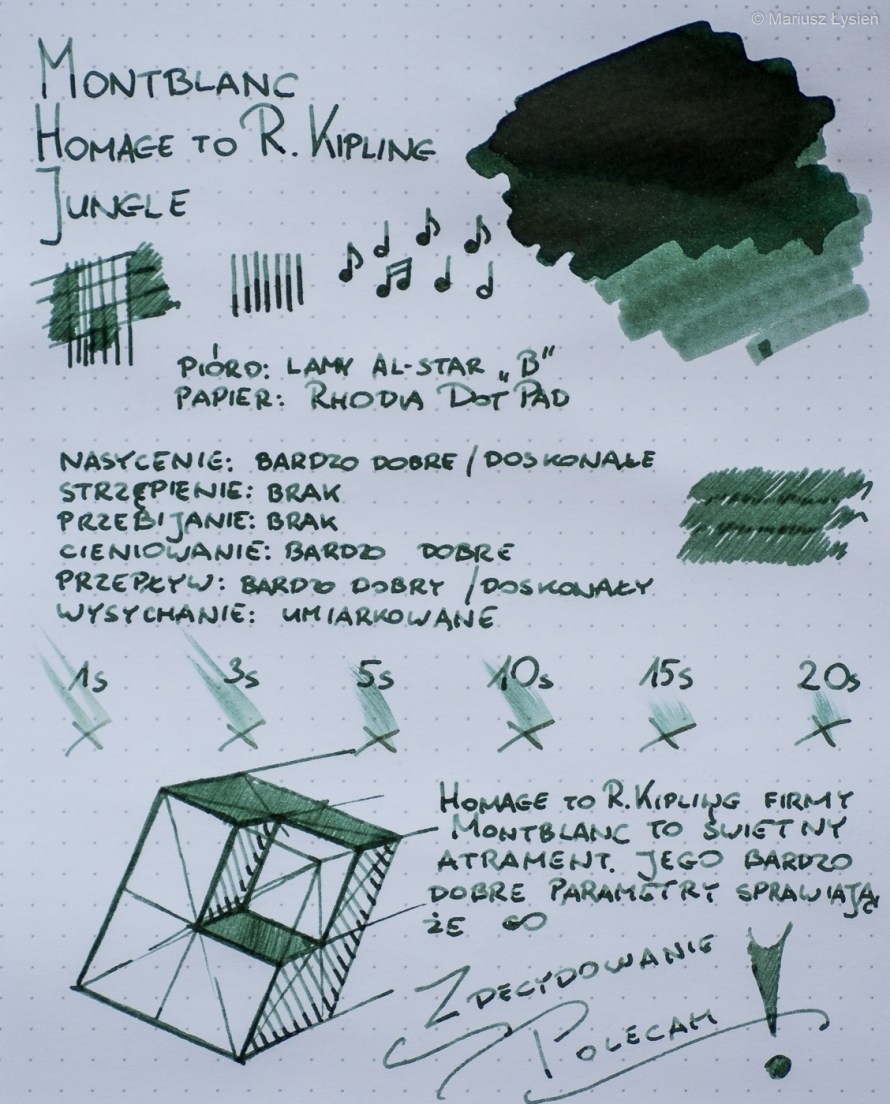 © Mariusz Łysień
MONTBLANC
HOMAGE TO R. KIPLING
JUNGLE
PIÓRO: LAMY AL-STAR „B"
PAPIER: RHODIA DOT PAD
NASYCENIE: BARDZO DOBRE / DOSKONAŁE
STRZĘPIENIE: BRAK
PRZEBIJANIE: BRAK
CIENIOWANIE: BARDZO DOBRE
PRZEPŁYW: BARDZO DOBRY / DOSKONAŁY
WYSYCHANIE: UMIARKOWANE
1s 3s 5s 10s 15s 20s
HOMAGE TO R. KIPLING FIRMY
MONTBLANC TO ŚWIETNY
ATRAMENT. JEGO BARDZO
DOBRE PARAMETRY SPRAWIAJĄ,
ŻE ∞
ZDECYDOWANIE
POLECAM !